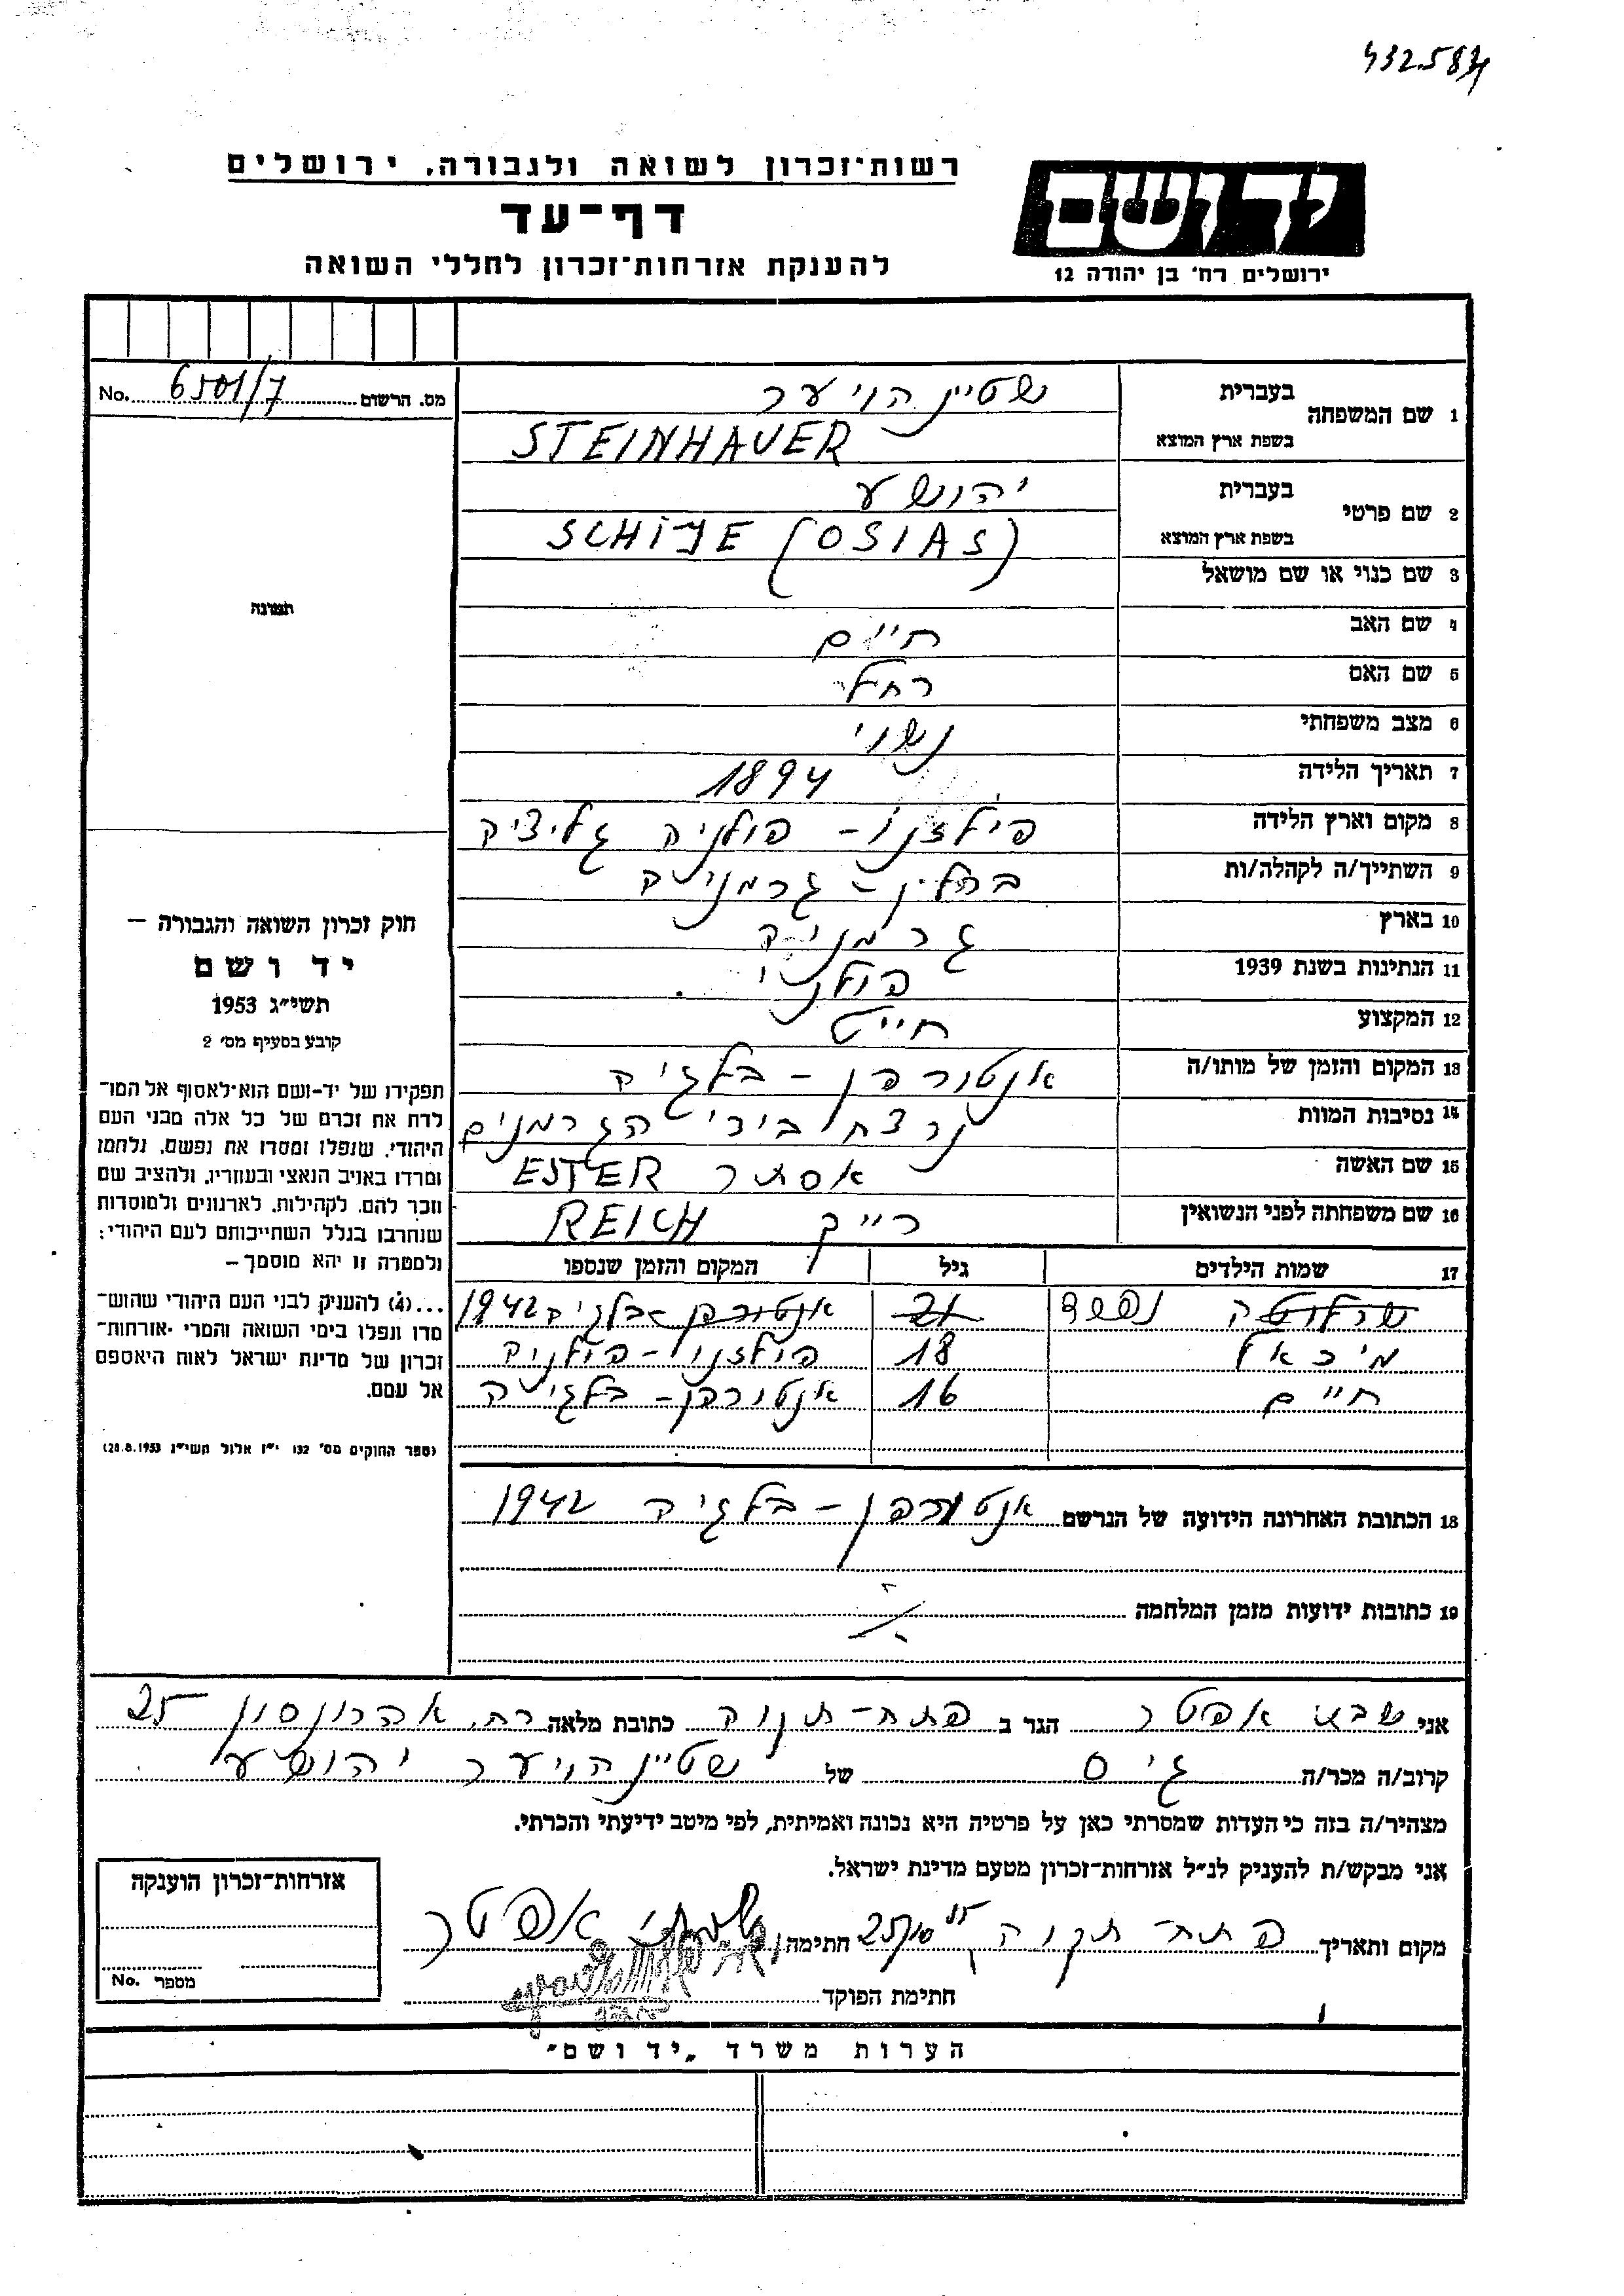 432.583
רשות־זכרון לשואה ולגבורה, ירושלים
יד ושם
דף־עד
ירושלים רח' בן יהודה 12
להענקת אזרחות־זכרון לחללי השואה
מס. הרשום 6501/7 No.
1 שם המשפחה
בעברית שטיין הויער
בשפת ארץ המוצא STEINHAUER
2 שם פרטי
בעברית יהושע
בשפת ארץ המוצא SCHIJE (OSIAS)
3 שם כנוי או שם מושאל
תמונה
4 שם האב חיים
5 שם האם רחל
6 מצב משפחתי נשוי
7 תאריך הלידה 1894
8 מקום וארץ הלידה פילזנו - פולניה גליציה
9 השתייך/ה לקהלה/ות ברלין - גרמניה
10 בארץ גרמניה
11 הנתינות בשנת 1939 פולני
12 המקצוע חייט
13 המקום והזמן של מותו/ה אנטורפן - בלגיה
14 נסיבות המוות נרצח בידי הגרמנים
15 שם האשה אסתר ESTER
16 שם משפחתה לפני הנשואין רייך REICH
17 שמות הילדים גיל המקום והזמן שנספו
שרלוטה 21 אנטורפן - בלגיה 1942
מיכאל 18 פילזנו - פולניה
חיים 16 אנטורפן - בלגיה
18 הכתובת האחרונה הידועה של הנרשם אנטורפן - בלגיה 1942
19 כתובות ידועות מזמן המלחמה
חוק זכרון השואה והגבורה –
יד ושם
תשי״ג 1953
קובע בסעיף מס' 2
תפקידו של יד-ושם הוא לאסוף אל המו־
לדת את זכרם של כל אלה מבני העם
היהודי, שנפלו ומסרו את נפשם, נלחמו
ומרדו באויב הנאצי ובעוזריו, ולהציב שם
וזכר להם, לקהילות, לארגונים ולמוסדות
שנחרבו בגלל השתייכותם לעם היהודי;
ולמטרה זו יהא מוסמך –
...(4) להעניק לבני העם היהודי שהוש־
מדו ונפלו בימי השואה והמרי אזרחות־
זכרון של מדינת ישראל לאות היאספם
אל עמם.
(ספר החוקים מס' 132 י״ז אלול תשי״ג 28.8.1953)
אני שבתי אפטר הגר ב פתח-תקוה כתובת מלאה רח. אהרונסון 25
קרוב/ה מכר/ה גיס של שטיין הויער יהושע
מצהיר/ה בזה כי העדות שמסרתי כאן על פרטיה היא נכונה ואמיתית, לפי מיטב ידיעתי והכרתי.
אני מבקש/ת להעניק לנ״ל אזרחות-זכרון מטעם מדינת ישראל.
מקום ותאריך פתח תקוה חתימה אפטר
חתימת הפוקד
אזרחות-זכרון הוענקה
מספר No.
הערות משרד „יד ושם"